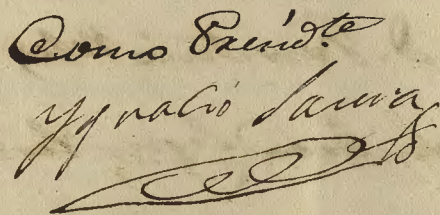 Como Presid.te
Ygnacio Saura